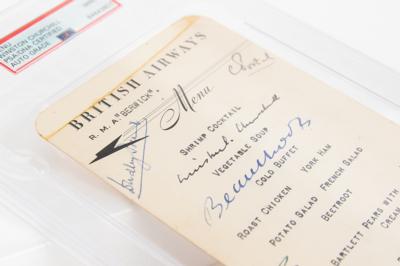 MENU
WINSTON CHURCHILL
PSA/DNA CERTIFIED
AUTO GRADE
BRITISH AIRWAYS
R. M. A "BERWICK".
Menu
SHRIMP COCKTAIL
Winston S. Churchill
VEGETABLE SOUP
Beaverbrook
COLD BUFFET
ROAST CHICKEN YORK HAM
POTATO SALAD FRENCH SALAD
BEETROOT
BARTLETT PEARS WITH
CREAM